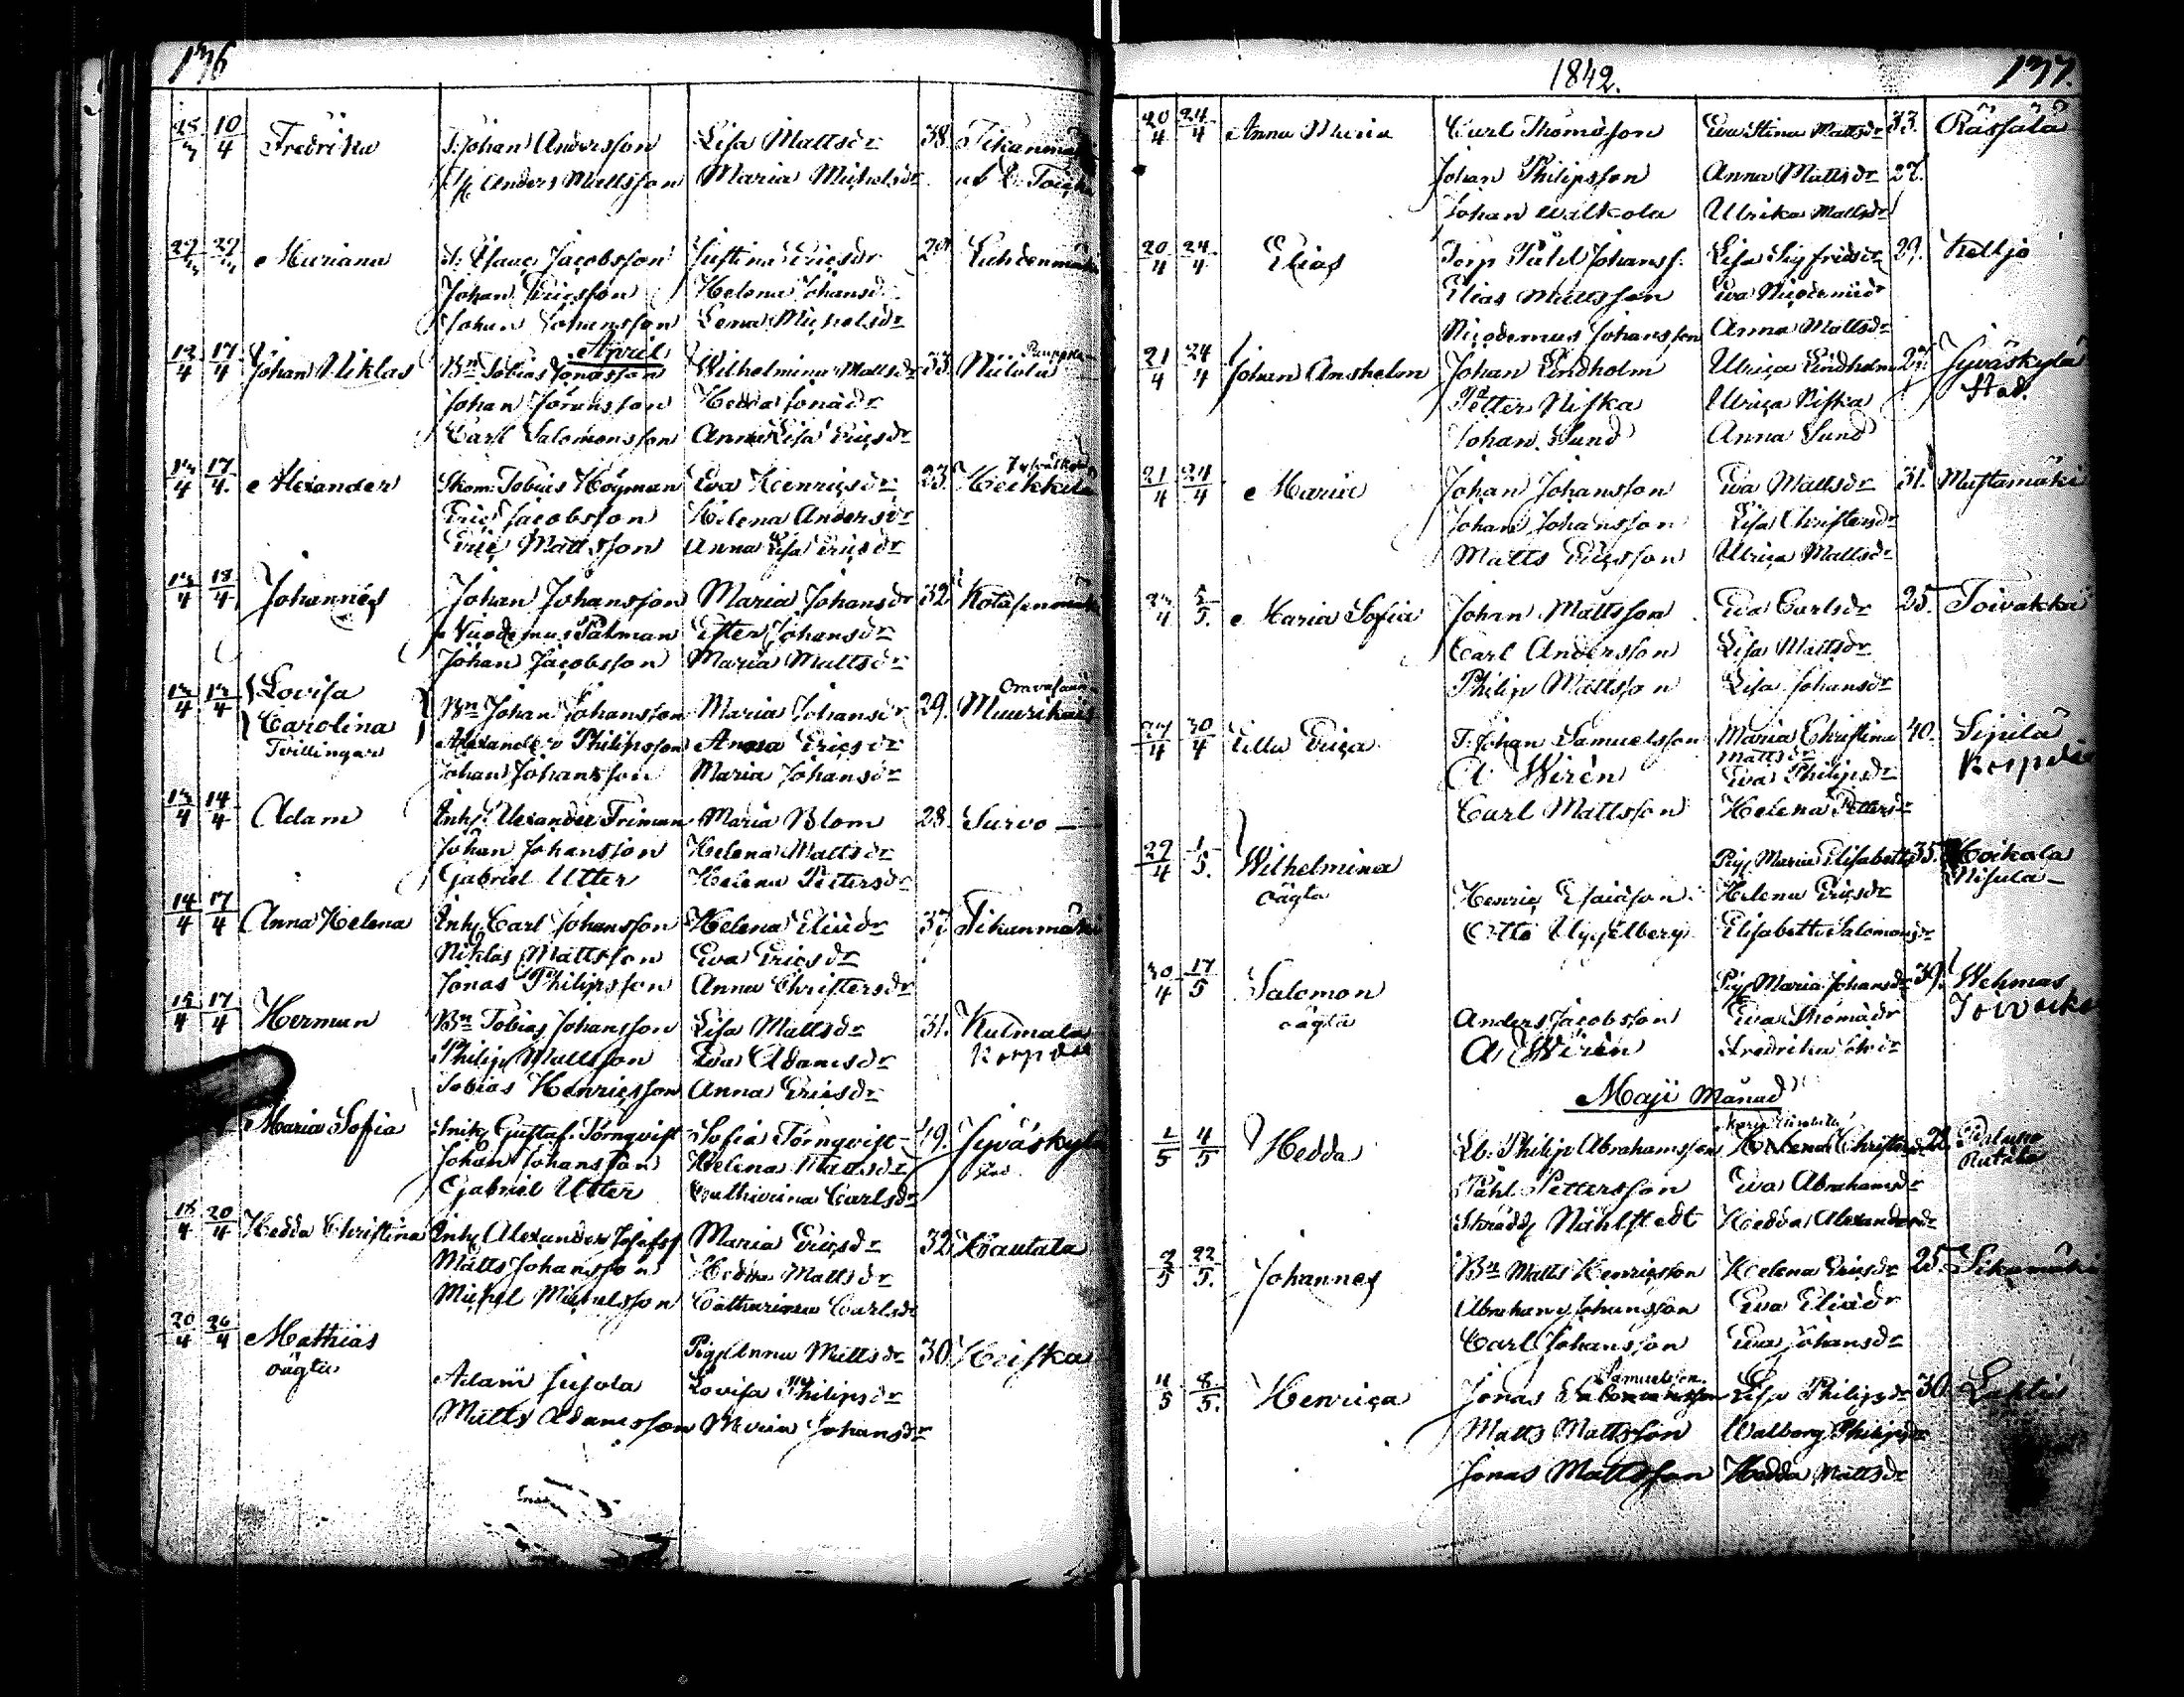 136
25/3 10/4 Fredrika T. Johan Andersson Lisa Mattsdr 38. Tikanmäki
Anders Mattsson Maria Michelsdr
27/3 29/3 Mariana Isaac Jacobsson Justina Ericsdr Luhdenmäki
Johan Ericsson Helena Johansdr
Johan Johansson Lena Michelsdr
April
12/4 17/4 Johan Niklas Bn Tobias Jonasson Wilhelmina Mattsdr 33. Niilola
Johan Johansson Hedda Jonädr
Carl Salomonsson Anna Lisa Ericsdr
13/4 17/4 Alexander Skom. Tobias Högman Eva Henricsdr 23. Heikkilä
Eric Jacobsson Helena Andersdr
Eric Mattsson Anna Lisa Ericsdr
13/4 18/4 Johannes Johan Johansson Maria Johansdr 32. Kotasenmäki
Nicodemus Palman Ester Johansdr
Johan Jacobsson Maria Mattsdr
13/4 13/4 Lovisa
Carolina Bn Johan Johansson Maria Johansdr 29. Muurikais
Tvillingar Alexander Philipsson Anna Ericsdr
Johan Johansson Maria Johansdr
13/4 14/4 Adam Inh. Alexander Friman Maria Blom 28. Survo
Johan Johansson Helena Mattsdr
Gabriel Utter Helena Pettersdr
14/4 17/4 Anna Helena Inh. Carl Johansson Helena Eliädr 37. Tikanmäki
Niklas Mattsson Eva Ericsdr
Jonas Philipsson Anna Christersdr
15/4 17/4 Herman Bn Tobias Johansson Lisa Mattsdr 31. Kulmala
Philip Mattsson Eva Adamsdr Korpi
Tobias Henricsson Anna Ericsdr
Maria Sofia Snik. Gustaf Törnqvist Sofia Törnqvist 19. Jyväskylä
Johan Johansson Helena Mattsdr stad
Gabriel Utter Catharina Carlsdr
18/4 20/4 Hedda Christina Inh. Alexander Josefss Maria Ericsdr 32. Rautala
Matts Johansson Hedda Mattsdr
Michel Michelsson Catharina Carlsdr
20/4 26/4 Mathias Pig. Anna Mattsdr 30 Heiska
oägta
Adam Jusola Lovisa Philipsdr
Matts Adamsson Maria Johansdr
1842.
137.
20/4 24/4 Anna Maria Carl Thomasson Eva Stina Mattsdr 33. Rässälä
Johan Philipsson Anna Mattsdr 27.
Johan Walkola Ulrika Mattsdr
20/4 24/4 Elias Torp. Påhl Johanss. Lisa Sigfridsdr 29. Keljo
Elias Mattsson Eva Nicodemidr
Nicodemus Johansson Anna Mattsdr
21/4 24/4 Johan Anshelm Johan Lindholm Ulrica Lindholm 27. Jyväskylä
Petter Niska Ulrica Niska Stad.
Johan Sund Anna Sund
21/4 24/4 Maria Johan Johansson Eva Mattsdr 31. Mustamäki
Johan Johansson Lisa Christersdr
Matts Ericsson Ulrica Mattsdr
23/4 5/5. Maria Sofia Johan Mattsson Eva Carlsdr 25. Toivakka
Carl Andersson Lisa Mattsdr
Philip Mattsson Lisa Johansdr
27/4 30/4 Ulla Erica T. Johan Samuelsson Maria Christina 40. Sipilä
Mattsdr
A Wirén Eva Philipsdr
Carl Mattsson Helena Pettersdr
29/4 1/5. Wilhelmina Pig. Maria Elisabetts 35. Hoikala
oägta Henric Esaiasson Helena Ericsdr Nisula
Otto Uggelberg Elisabetta Salomonsdr
30/4 17/5 Salomon Pig. Maria Johansdr 39. Wehmas
oägta Anders Jacobsson Eva Thomädr Toivacka
A Wirén Fredrika
Maji Månad
1/5 4/5 Hedda Lb. Philip Abrahamsson Christersdr 28.
Påhl Pettersson Eva Abrahamsdr
Skrädd. Nahlstedt Hedda Alexandersdr
2/5 22/5. Johannes Bn Matts Henricsson Helena Ericsdr 25. Sikamäki
Abraham Johansson Eva Eliädr
Carl Johansson Eva Johansdr
Samuelsson
4/5 8/5. Henrica Jonas Lisa Philipsdr 30. Lahti
Matts Mattsson Walborg Philipsdr
Jonas Mattsson Hedda Mattsdr